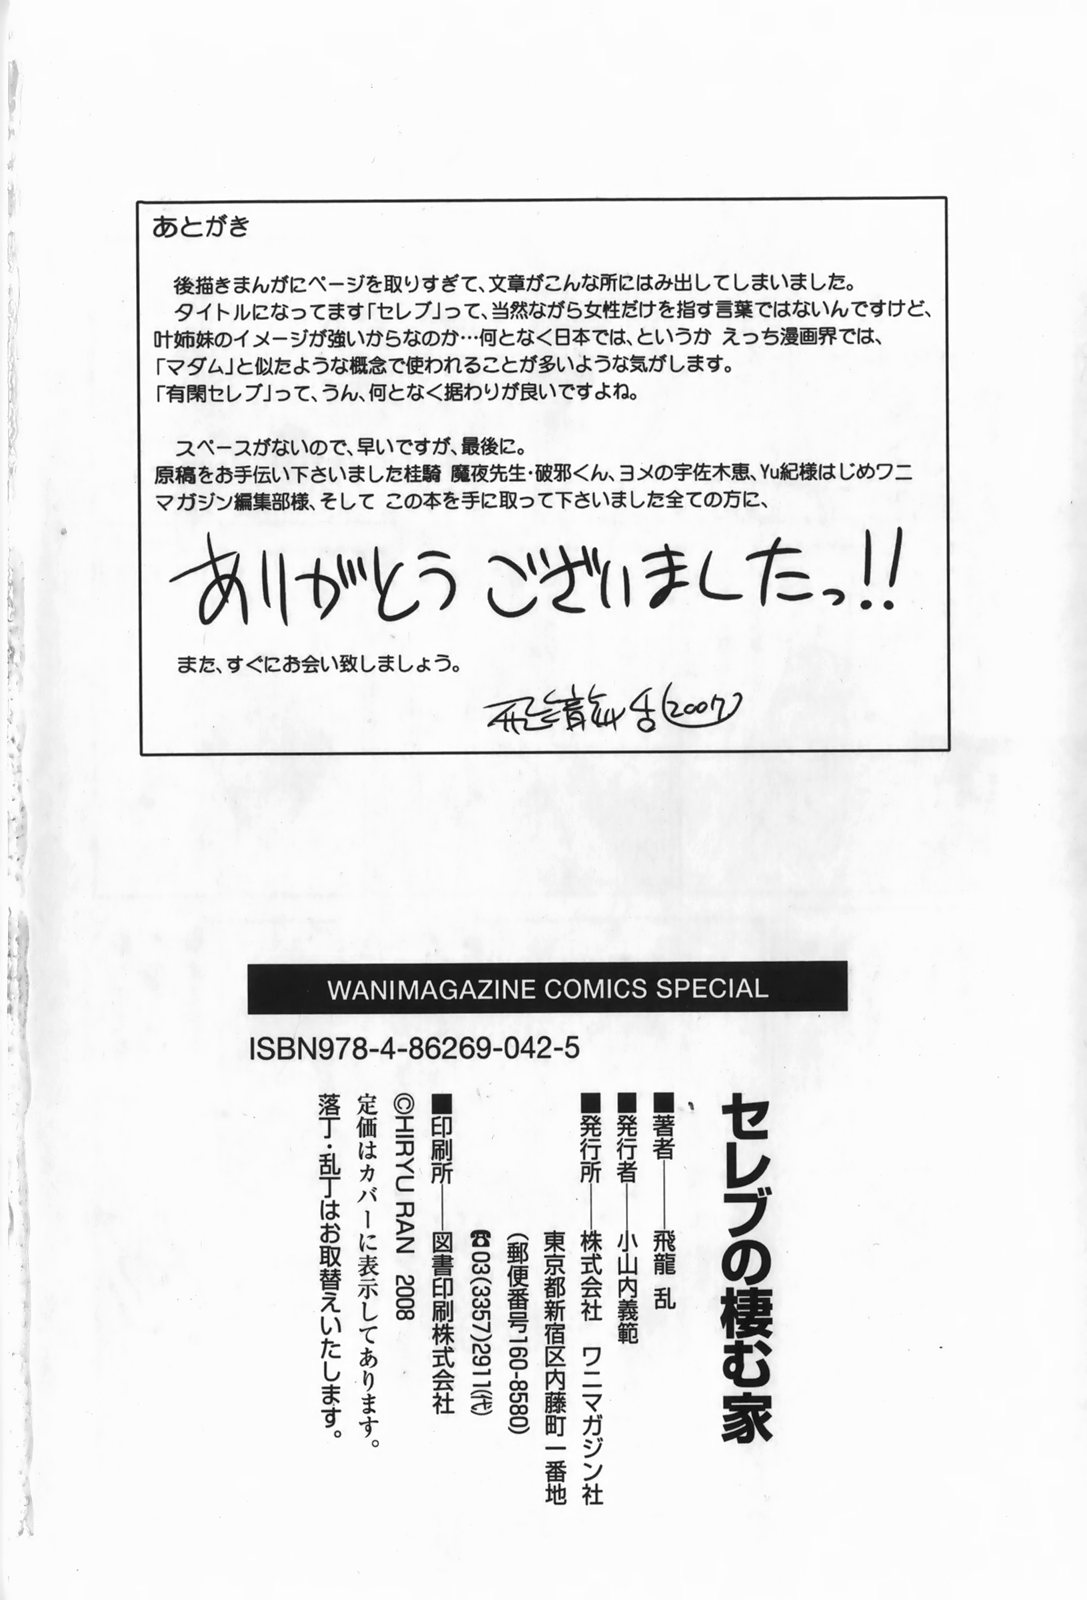 あとがき
後描きまんがにページを取りすぎて、文章がこんな所にはみ出してしまいました。
タイトルになってます「セレブ」って、当然ながら女性だけを指す言葉ではないんですけど、
叶姉妹のイメージが強いからなのか…何となく日本では、というか えっち漫画界では、
「マダム」と似たような概念で使われることが多いような気がします。
「有閑セレブ」って、うん、何となく据わりが良いですよね。
スペースがないので、早いですが、最後に。
原稿をお手伝い下さいました桂騎 魔夜先生・破邪くん、ヨメの宇佐木恵、Yu紀様はじめワニ
マガジン編集部様、そして この本を手に取って下さいました全ての方に、
ありがとうございましたっ!!
また、すぐにお会い致しましょう。
飛龍乱 (2007)
WANIMAGAZINE COMICS SPECIAL
ISBN978-4-86269-042-5
セレブの棲む家
■著者――飛龍 乱
■発行者――小山内義範
■発行所――株式会社 ワニマガジン社
東京都新宿区内藤町一番地
(郵便番号160-8580)
☎03(3357)2911(代)
■印刷所――図書印刷株式会社
©HIRYU RAN 2008
定価はカバーに表示してあります。
落丁・乱丁はお取替えいたします。